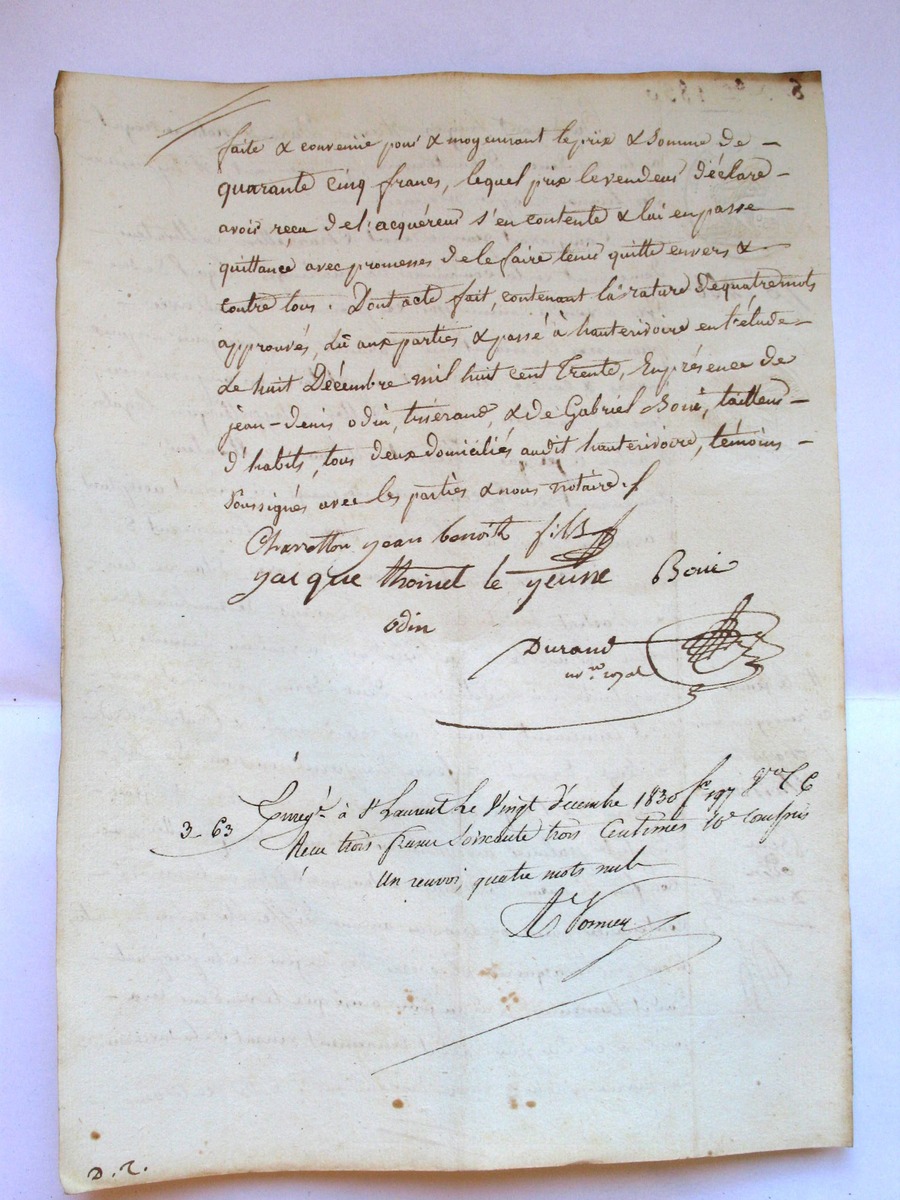 faite & convenue pour & moyennant le prix & Somme de –
quarante cinq francs, lequel prix le vendeur déclare –
avoir reçu de l'acquéreur s'en contente & lui en passe
quittance avec promesses de le faire tenir quitte envers &
contre tous. Dont acte fait, contenant la rature de quatre mots
approuvés, lû aux parties & passé à hauterivoire en l'étude –
Le huit Décembre mil huit cent Trente, En présence de
jean-denis odin, tisserand, & de Gabriel Boué, tailleur –
d'habits, tous deux domiciliés audit hauterivoire, témoins –
Soussignés avec les parties & nous notaire.
Charretton jean benoit fils
jacque thoinet le jeune Boué
odin
Durand
nre royal
3-63 Enregé. à St Laurent Le Vingt décembre 1830 fo 197 Vo C 6
Reçu trois francs Soixante trois Centimes 10e Compris
Un renvoi, quatre mots nuls
D. T.